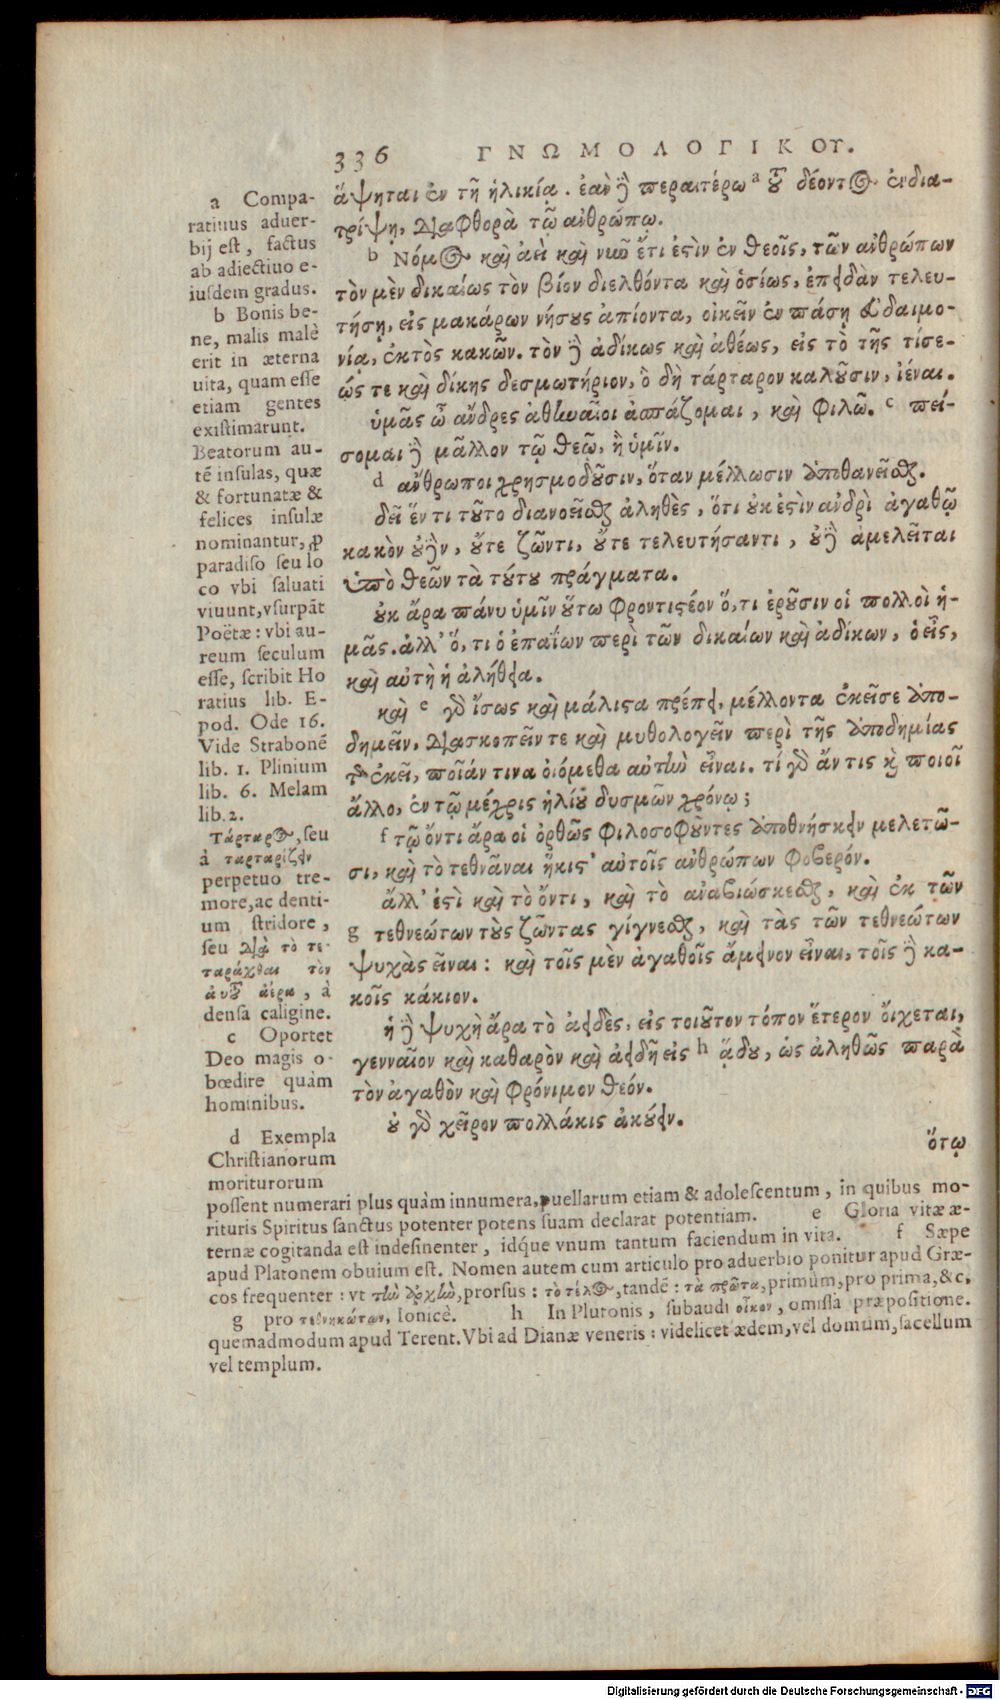 336 ΓΝΩΜΟΛΟΓΙΚΟΥ.
ἅψηται ἐν τῇ ἡλικίᾳ. ἐὰν δὲ περαιτέρω a τοῦ δέοντος ἐνδια-
τρίψῃ, διαφθορὰ τῷ ἀνθρώπῳ.
b Νόμος καὶ ἀεὶ καὶ νῦν ἔτι ἐστὶν ἐν θεοῖς, τῶν ἀνθρώπων
τὸν μὲν δικαίως τὸν βίον διελθόντα καὶ ὁσίως, ἐπειδὰν τελευ-
τήσῃ, εἰς μακάρων νήσους ἀπίοντα, οἰκεῖν ἐν πάσῃ εὐδαιμο-
νίᾳ, ἐκτὸς κακῶν. τὸν δὲ ἀδίκως καὶ ἀθέως, εἰς τὸ τῆς τίσε-
ώς τε καὶ δίκης δεσμωτήριον, ὃ δὴ τάρταρον καλοῦσιν, ἰέναι.
ὑμᾶς ὦ ἄνδρες ἀθηναῖοι ἀσπάζομαι, καὶ φιλῶ. c πεί-
σομαι δὲ μᾶλλον τῷ θεῷ, ἢ ὑμῖν.
d ἄνθρωποι χρησμοδοῦσιν, ὅταν μέλλωσιν ἀποθανεῖσθαι.
δεῖ ἕν τι τοῦτο διανοεῖσθαι ἀληθὲς, ὅτι οὐκ ἐστὶν ἀνδρὶ ἀγαθῷ
κακὸν οὐδὲν, οὔτε ζῶντι, οὔτε τελευτήσαντι, οὐδὲ ἀμελεῖται
ὑπὸ θεῶν τὰ τούτου πράγματα.
οὐκ ἄρα πάνυ ὑμῖν οὕτω φροντιστέον ὅ, τι ἐροῦσιν οἱ πολλοὶ ἡ-
μᾶς. ἀλλ' ὅ, τι ὁ ἐπαΐων περὶ τῶν δικαίων καὶ ἀδίκων, ὁ εἷς,
καὶ αὐτὴ ἡ ἀλήθεια.
καὶ e γὰρ ἴσως καὶ μάλιστα πρέπει, μέλλοντα ἐκεῖσε ἀπο-
δημεῖν, διασκοπεῖν τε καὶ μυθολογεῖν περὶ τῆς ἀποδημίας
τῆς ἐκεῖ, ποῖάν τινα οἰόμεθα αὐτὴν εἶναι. τί γὰρ ἄν τις καὶ ποιοῖ
ἄλλο, ἐν τῷ μέχρις ἡλίου δυσμῶν χρόνῳ;
f τῷ ὄντι ἄρα οἱ ὀρθῶς φιλοσοφοῦντες ἀποθνήσκειν μελετῶ-
σι, καὶ τὸ τεθνᾶναι ἥκιστ' αὐτοῖς ἀνθρώπων φοβερόν.
ἄλλ' ἐστὶ καὶ τὸ ὄντι, καὶ τὸ ἀναβιώσκεσθαι, καὶ ἐκ τῶν
g τεθνεώτων τοὺς ζῶντας γίγνεσθαι, καὶ τὰς τῶν τεθνεώτων
ψυχὰς εἶναι: καὶ τοῖς μὲν ἀγαθοῖς ἄμεινον εἶναι, τοῖς δὲ κα-
κοῖς κάκιον.
ἡ δὲ ψυχὴ ἄρα τὸ ἀειδὲς, εἰς τοιοῦτον τόπον ἕτερον οἴχεται,
γενναῖον καὶ καθαρὸν καὶ ἀειδῆ εἰς h ᾅδου, ὡς ἀληθῶς παρὰ
τὸν ἀγαθὸν καὶ φρόνιμον θεόν.
οὐ γὰρ χεῖρον πολλάκις ἀκούειν.
ὅτῳ
a Compa-
ratiuus aduer-
bij est, factus
ab adiectiuo e-
iusdem gradus.
b Bonis be-
ne, malis malè
erit in æterna
uita, quam esse
etiam gentes
existimarunt.
Beatorum au-
tē insulas, quæ
& fortunatæ &
felices insulæ
nominantur, ꝓ
paradiso seu lo
co vbi saluati
viuunt, vsurpāt
Poëtæ: vbi au-
reum seculum
esse, scribit Ho
ratius lib. E-
pod. Ode 16.
Vide Strabonē
lib. 1. Plinium
lib. 6. Melam
lib. 2.
Τάρταρος, seu
à ταρταρίζειν
perpetuo tre-
more, ac denti-
um stridore,
seu διὰ τὸ τε-
ταράχθαι τὸν
αὐτοῦ ἀέρα, à
densa caligine.
c Oportet
Deo magis o-
bœdire quàm
hominibus.
d Exempla
Christianorum
moriturorum
possent numerari plus quàm innumera, puellarum etiam & adolescentum, in quibus mo-
rituris Spiritus sanctus potenter potens suam declarat potentiam. e Gloria vitæ æ-
ternæ cogitanda est indesinenter, idq́ue vnum tantum faciendum in vita. f Sæpe
apud Platonem obuium est. Nomen autem cum articulo pro aduerbio ponitur apud Græ-
cos frequenter: vt τὴν ἀρχὴν, prorsus: τὸ τέλος, tandē: τὰ πρῶτα, primùm, pro prima, &c.
g pro τεθνηκότων, Ionicè. h In Plutonis, subaudi οἶκον, omissa præpositione.
quemadmodum apud Terent. Vbi ad Dianæ veneris: videlicet ædem, vel domum, sacellum
vel templum.
Digitalisierung gefördert durch die Deutsche Forschungsgemeinschaft - DFG